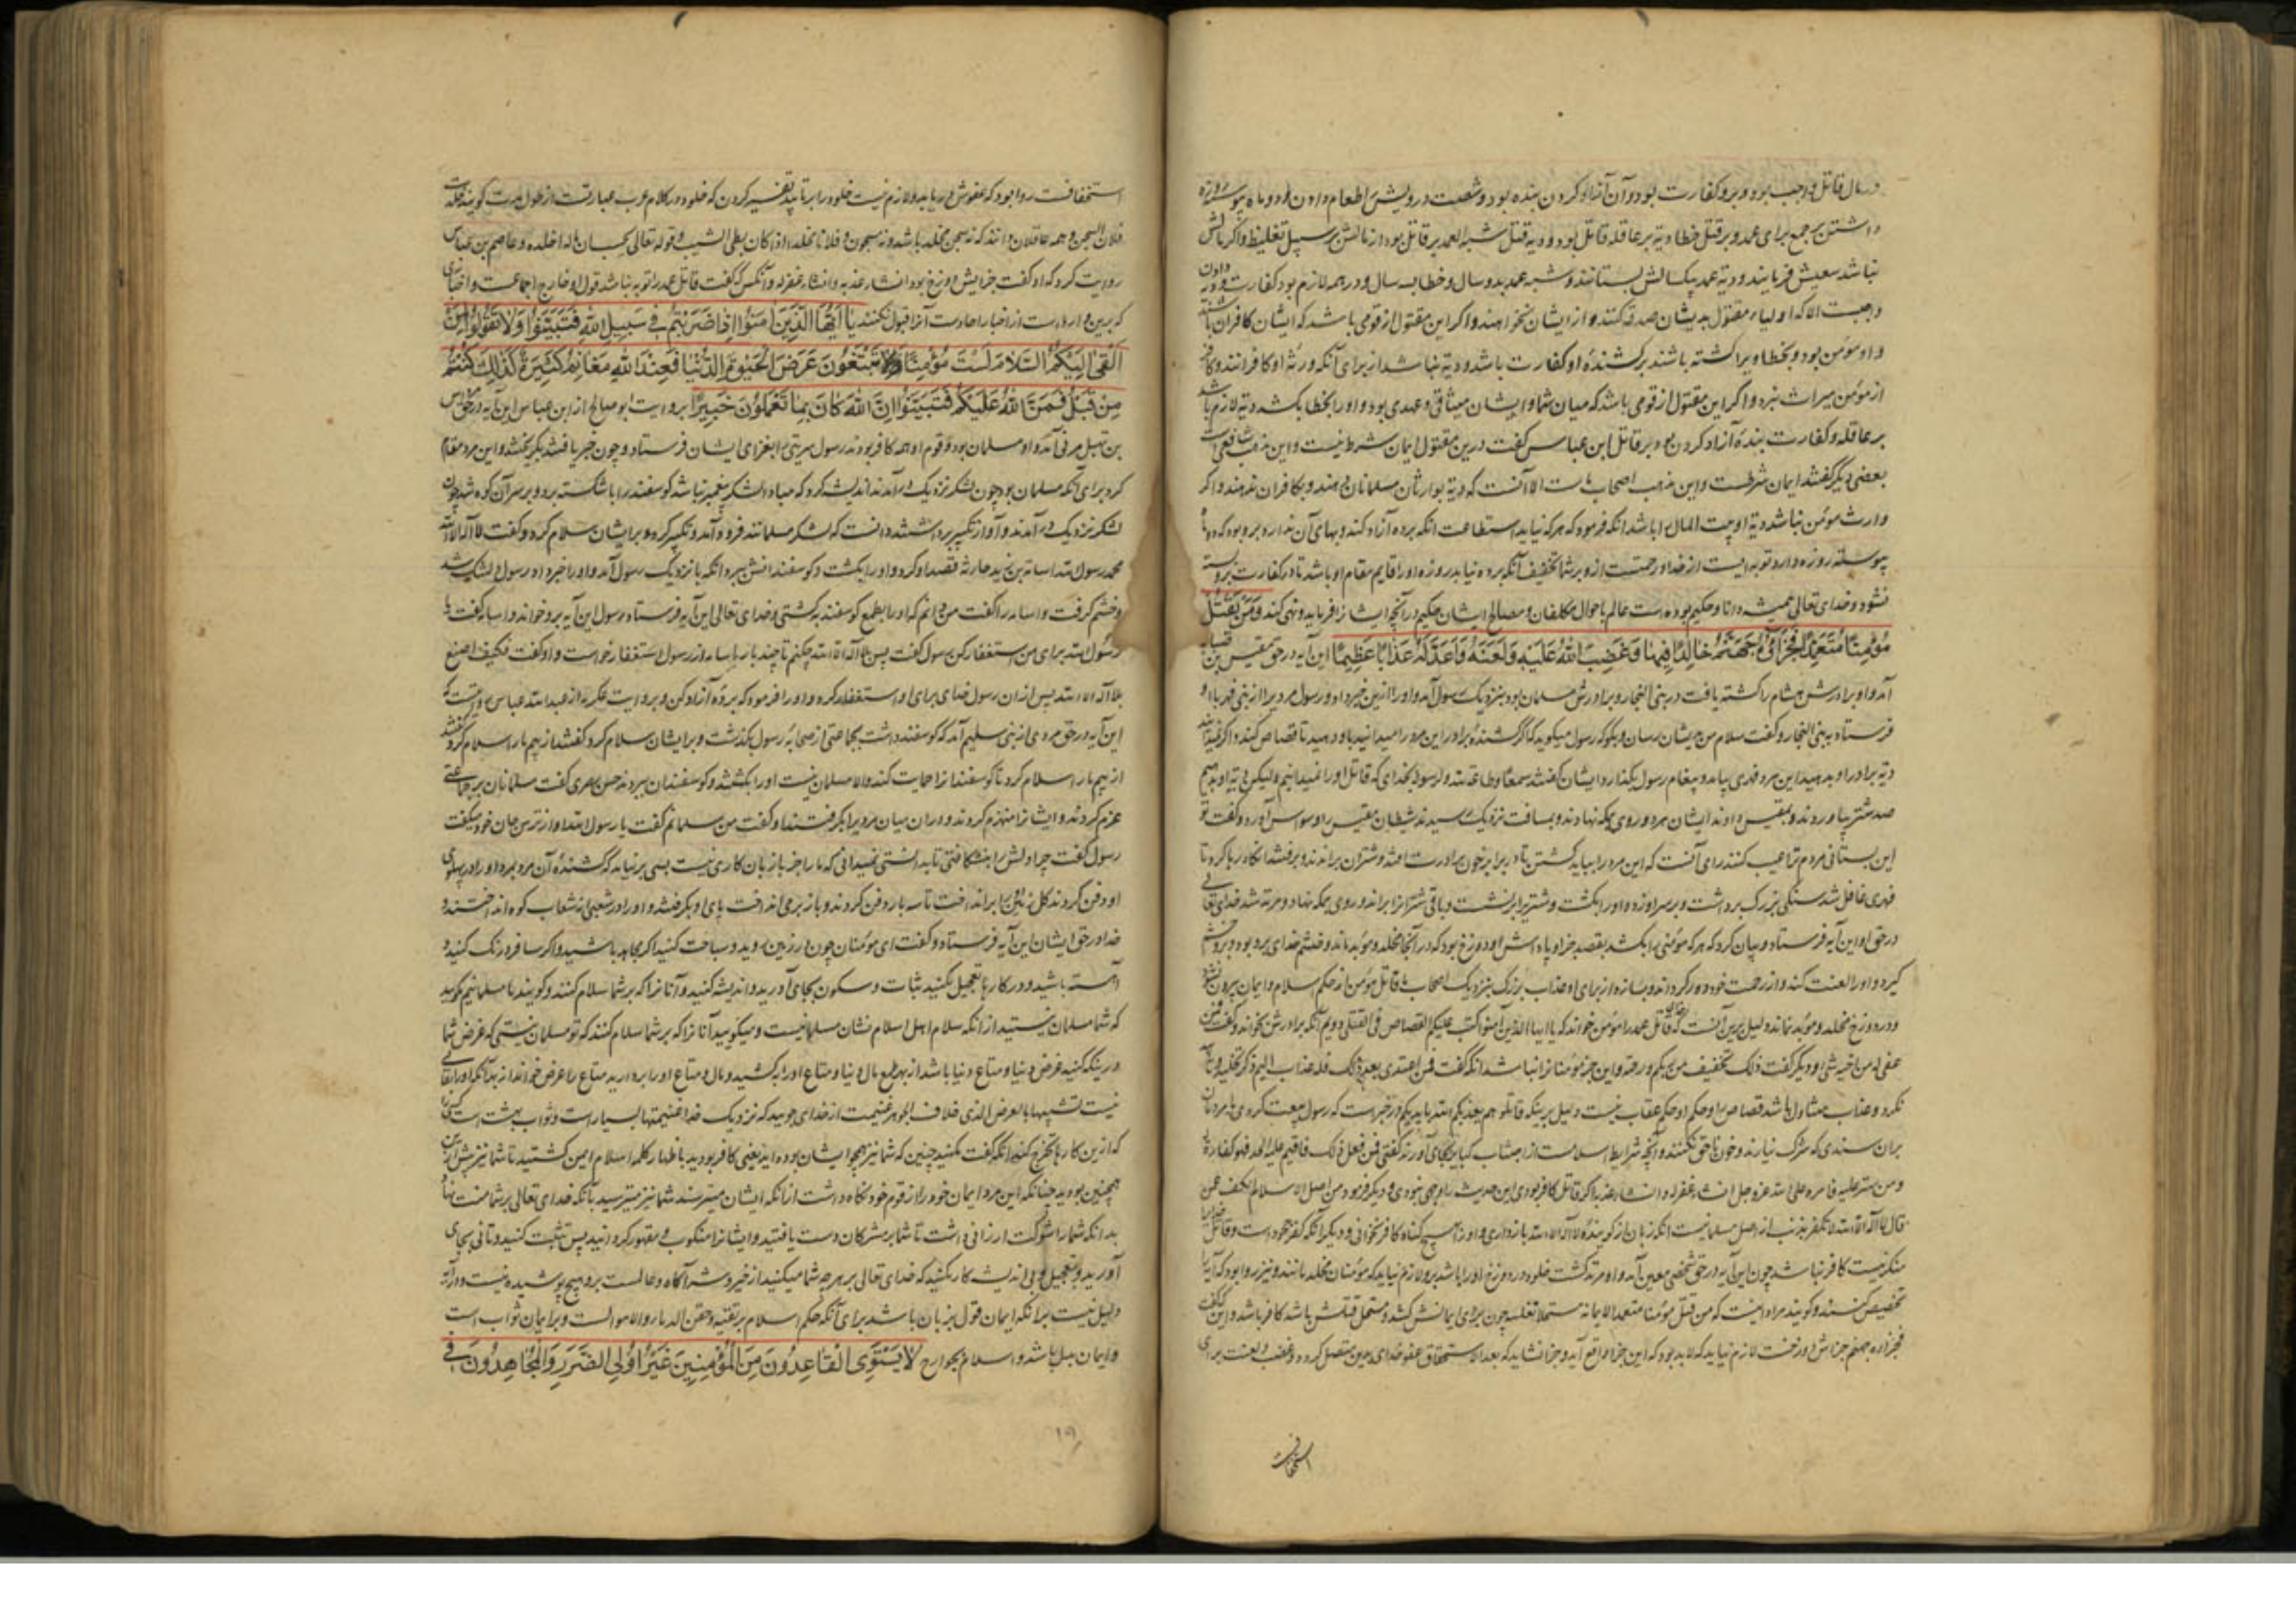 در مال قاتل واجب بود و برو کفارت بود و آن آزاد کردن بنده بود و شصت درویش اطعام دادن و دو ماه پیوسته روزه
داشتن بر جمع برای عمد و بر قتل خطا دیة بر عاقله قاتل بود و دیه قتل شبه العمد بر قاتل بود از مالش بر سبیل تغلیظ و اگر مالش
نباشد سعیش فرمایند و دیة عمد بیکسالش بستانند و شبه عمد بدو سال و خطا بسه سال و در همه لازم بود کفارت و دیة دادن
واجبست الا که اولیاء مقتول بدیشان صدقه کنند و از ایشان نخواهند و اگر این مقتول از قومی باشد که ایشان کافران باشند
و او مومن بود و بخطا ویرا کشته باشند بر کشندهٔ او کفارت باشد و دیة نباشد از برای آنکه ورثهٔ او کافرانند و کافر
از مومن میراث نبرد و اگر این مقتول از قومی باشد که میان شما و ایشان میثاقی و عهدی بود و او را بخطا بکشد دیة لازم باشد
بر عاقله و کفارت بندهٔ آزاد کردن بود بر قاتل ابن عباس گفت درین مقتول ایمان شرط نیست و این مذهب شافعی است
بعضی دیگر گفتند ایمان شرطست و این مذهب اصحاب ماست الا آنست که دیة بوارثان مسلمانان دهند و بکافران ندهند و اگر
وارث مومن نباشد دیة او بیت المال را باشد آنکه فرمود که هر که نیابد استطاعت آنکه برده آزاد کند و بهای آن ندارد برو بود که دو ماه
پیوسته روزه دارد توبه ایست از خدا و رحمتست ازو بر شما تخفیف آنکه برده نیابد روزه او را قایم مقام او باشد تا در کفارت برو بسته
نشود و خدای تعالی همیشه دانا و حکیم بوده است عالم باحوال مکلفان و مصالح ایشان حکیم در آنچه ایشانرا فرماید و نهی کند وَمَنْ يَقْتُلْ
مُؤْمِنًا مُتَعَمِّدًا فَجَزَاؤُهُ جَهَنَّمُ خَالِدًا فِيهَا وَغَضِبَ اللّٰهُ عَلَيْهِ وَلَعَنَهُ وَأَعَدَّ لَهُ عَذَابًا عَظِيمًا این آیه در حق مقیس بن صبابه
آمد و او برادرش هشام را کشته یافت در بنی النجار و برادرش مسلمان بود بنزدیک رسول آمد و او را ازین خبر داد و رسول مردیرا از بنی فهر با او
فرستاد به بنی النجار و گفت سلام من بدیشان رسان و بگو که رسول میگوید که اگر کشندهٔ برادر این مرد را میدانید باو دهید تا قصاص کند و اگر نمیدانید
دیة برادر او بدهید این مرد فهری بیامد و پیغام رسول بگذارد ایشان گفتند سمعا و طاعة لله و لرسوله بخدای که قاتل او را نمیدانیم ولیکن دیة او بدهیم
صد شتر بیاوردند و بمقیس دادند ایشان هر دو روی بمکه نهادند و بمسافت نزدیک رسیدند شیطان مقیس را وسواس آورد و گفت تو
این بستانی مردم ترا عیب کنند رای آنست که این مرد را بباید کشتن تا برابر خون برادرت باشد و شتران براندند و برفتند
فهری غافل شد سنگی بزرک برداشت و بر سر او زد و او را بکشت و شتریرا برنشست و باقی شترانرا براند و روی بمکه نهاد و مرتد شد خدای تعالی
در حق او این آیه فرستاد و بیان کرد که هر که مومنی را بکشد بقصد جزا و پاداش او دوزخ بود که در آنجا مخلد و موبد ماند و خشم خدای برو بود و برو خشم
گیرد و او را لعنت کند و از رحمت خود دور کرداند و بسازد از برای او عذاب بزرک بنزدیک اصحاب ما قاتل مومن از حکم اسلام و ایمان بیرون نشود
و در دوزخ مخلد و موبد نماند دلیل برین آنست که قاتل عمد را مومن خواند که یا ایها الذین آمنوا کتب علیکم القصاص فی القتلی دویم آنکه برادرش بخواند و گفت فمن
عفی له من اخیه شیء و دیگر گفت ذلک تخفیف من ربکم و رحمة و این جز مومنانرا نباشد آنکه گفت فمن اعتدی بعد ذلک فله عذاب الیم ذکر تخلید و تابید
نکرد و عذاب متناول باشد قصاص را و حکم او حکم عقاب نیست دلیل برینکه قاتلوهم یعذبهم الله بایدیکم و در خبرست که رسول بیعت کردی با مردمان
بران ستدی که شرک نیارند و خون ناحق نکنند و آنچه شرایط اسلامست از اجتناب کبایر بجای آورند گفتی فمن فعل ذلک فاقیم علیه الحد فهو کفارة له
و من ستر علیه فامره علی الله عزوجل ان شاء غفر له و ان شاء عذبه اگر قاتل کافر بودی این حدیث را وجهی نبودی و دیگر فرمود من اصل الاسلام الکف عمن
قال لا اله الا الله لا تکفره بذنب از اصل مسلمانیست آنکه زبان از گویندهٔ لا اله الا الله بازداری و او را بهیچ گناه کافر نخوانی و دیگر آنکه کفر جحود است و قاتل
منکر نیست کافر نباشد چون این آیه در حق شخصی معین آمد و او مرتد کشت خلود در دوزخ او را باشد برو لازم نیاید که مومنان مخلد مانند و نیز روا بود که آیه را
تخصیص کنند و گویند مراد اینست که من قتل مومنا متعمدا لایمانه مستحلا لقتله چون برای ایمانش کشد و مستحل قتلش باشد کافر باشد و این که گفت
فجزاوه جهنم جزاش دوزخست لازم نیاید که لا بد بود که این جزا واقع آید و جزا نشاید که بعد الاستحقاق عفو خدای بدین متصل کردد و غضب و لعنت برای
استخفافست
استخفافست روا بود که عفوش دریابد و لازم نیست خلود را بر تابید تفسیر کردن که خلود در کلام عرب عبارتست از طول مدت گویند خلد
فلان السجن و همه عاقلان دانند که نه سجن مخلد باشد و نه مسجون و فلانا مخلدا اذا کان بطی الشیب و قوله تعالی یحسب ان ماله اخلده و عاصم بن عباس
روایت کرد که او گفت جزایش دوزخ بود ان شاء عذبه و ان شاء غفر له و آنکس که گفت قاتل عمد را توبه نباشد قول او خارج اجماعست و اخباری
که برین وارد است از اخبار احادست آنرا قبول نکنند يَا أَيُّهَا الَّذِينَ آمَنُوا إِذَا ضَرَبْتُمْ فِي سَبِيلِ اللّٰهِ فَتَبَيَّنُوا وَلَا تَقُولُوا لِمَنْ
أَلْقَى إِلَيْكُمُ السَّلَامَ لَسْتَ مُؤْمِنًا تَبْتَغُونَ عَرَضَ الْحَيٰوةِ الدُّنْيَا فَعِنْدَ اللّٰهِ مَغَانِمُ كَثِيرَةٌ كَذٰلِكَ كُنْتُمْ
مِنْ قَبْلُ فَمَنَّ اللّٰهُ عَلَيْكُمْ فَتَبَيَّنُوا إِنَّ اللّٰهَ كَانَ بِمَا تَعْمَلُونَ خَبِيرًا بروایت ابو صالح از ابن عباس این آیه در حق
مردی آمد و او مسلمان بود و قوم او همه کافر بودند رسول سریتی را بغزای ایشان فرستاد و چون خبر یافتند بگریختند و این مرد مقام
کرد برای آنکه مسلمان بود چون لشکر نزدیک در آمدند اندیشه کرد که مبادا لشکر پیغمبر نباشد گوسفند را با شکسته برد و بر سر آن کوه شد چون
لشکر نزدیک در آمدند و آواز تکبیر برداشتند دانست که لشکر مسلمانند فرود آمد و تکبیر کرد و بر ایشان سلام کرد و گفت لا اله الا الله
محمد رسول الله اسامة بن زید حارثه قصد او کرد و او را بکشت و گوسفندانش ببرد آنکه با نزدیک رسول آمد و او را خبر داد رسول دلتنک شد
و خشم گرفت و اسامه را گفت من دانم که او را بطمع گوسفند بکشتی و خدای تعالی این آیه فرستاد رسول این آیه برو خواند و اسامه گفت یا
رسول الله برای من استغفار کن رسول گفت پس بلا اله الا الله چکنم تا چند بار اسامه از رسول استغفار خواست و او گفت فکیف اصنع
بلا اله الا الله پس از آن رسول خدای برای او استغفار کرد و او را فرمود که بردهٔ آزاد کن و بروایت عکرمه از عبدالله عباس
این آیه در حق مردی از بنی سلیم آمد که گوسفند داشت بجماعتی از صحابهٔ رسول بگذشت و بر ایشان سلام کرد گفتند از بیم ما بر ما سلام کرد گفتند
از بیم ما بر ما سلام کرد تا گوسفندانرا حمایت کند و الا مسلمان نیست او را بکشتند و گوسفندان ببردند حسن بصری گفت مسلمانان بر جماعتی
عزم کردند و ایشانرا منهزم کردند و در آن میان مردیرا بگرفتند او گفت من مسلمانم گفت یا رسول الله او از ترس جان خود میگفت
رسول گفت چرا دلش را بنشکافتی تا بدانستی نمیدانی که ما را جز با زبان کاری نیست بسی برنیامد که کشندهٔ آن مرد بمرد و او را در پهلوی
او دفن کردند زمین برانداخت تا سه بار دفن کردند و باز برمی انداخت پای او بگرفتند و او را در شعبی از شعاب کوه انداختند و
خدا در حق ایشان این آیه فرستاد و گفت ای مومنان چون در زمین روید و سیاحت کنید اگر مجاهد باشید و اگر مسافر درنک کنید و
آهسته باشید و در کارها تعجیل مکنید ثبات و سکون بجای آورید و اندیشه کنید و آنانرا که بر شما سلام کنند و گویند ما مسلمانیم مگویید
که شما مسلمان نیستید از آنکه سلام اهل اسلام نشان مسلمانیست و میگویید آنانرا که بر شما سلام کنند که تو مسلمان نیستی که غرض شما
درینکه کنید عرض دنیا و متاع دنیا باشد از بهر طمع مال دنیا و متاع او را بکشید و مال و متاع او را بردارید متاع را عرض خواند از بهر آنکه او را بقایی
نیست تشبیها بالعرض الذی خلاف الجوهر غنیمت از خدای جویید که نزدیک خدا غنیمتها بسیار است و ثواب بهشت است
که ازین کارها تحرج کنید آنکه گفت مکنید چنین که شما نیز همچو ایشان بوده اید یعنی کافر بودید باظهار کلمهٔ اسلام ایمن گشتید تا شما نیز پیش ازین
همچنین بودید چنانکه این مرد ایمان خود را از قوم خود نگاه داشت از آنکه ایشان میترسند شما نیز میترسید بآنکه خدای تعالی بر شما منت نهاد
بدانکه شما را شوکت ارزانی داشت تا شما بر مشرکان دست یافتید و ایشانرا منکوب و مقهور کردانید پس تثبت کنید و تانی بجای
آورید و بتعجیل و بی اندیشه کار مکنید که خدای تعالی بر هر چه شما میکنید از خیر و شر آگاه و عالمست برو هیچ پوشیده نیست و در آیه
دلیل نیست برانکه ایمان قول بزبان باشد برای آنکه حکم اسلام بر تقیه و حقن الدماء و الاموالست و بر ایمان ثواب است
و ایمان بدل باشد و اسلام بجوارح لَا يَسْتَوِي الْقَاعِدُونَ مِنَ الْمُؤْمِنِينَ غَيْرُ أُولِي الضَّرَرِ وَالْمُجَاهِدُونَ فِي